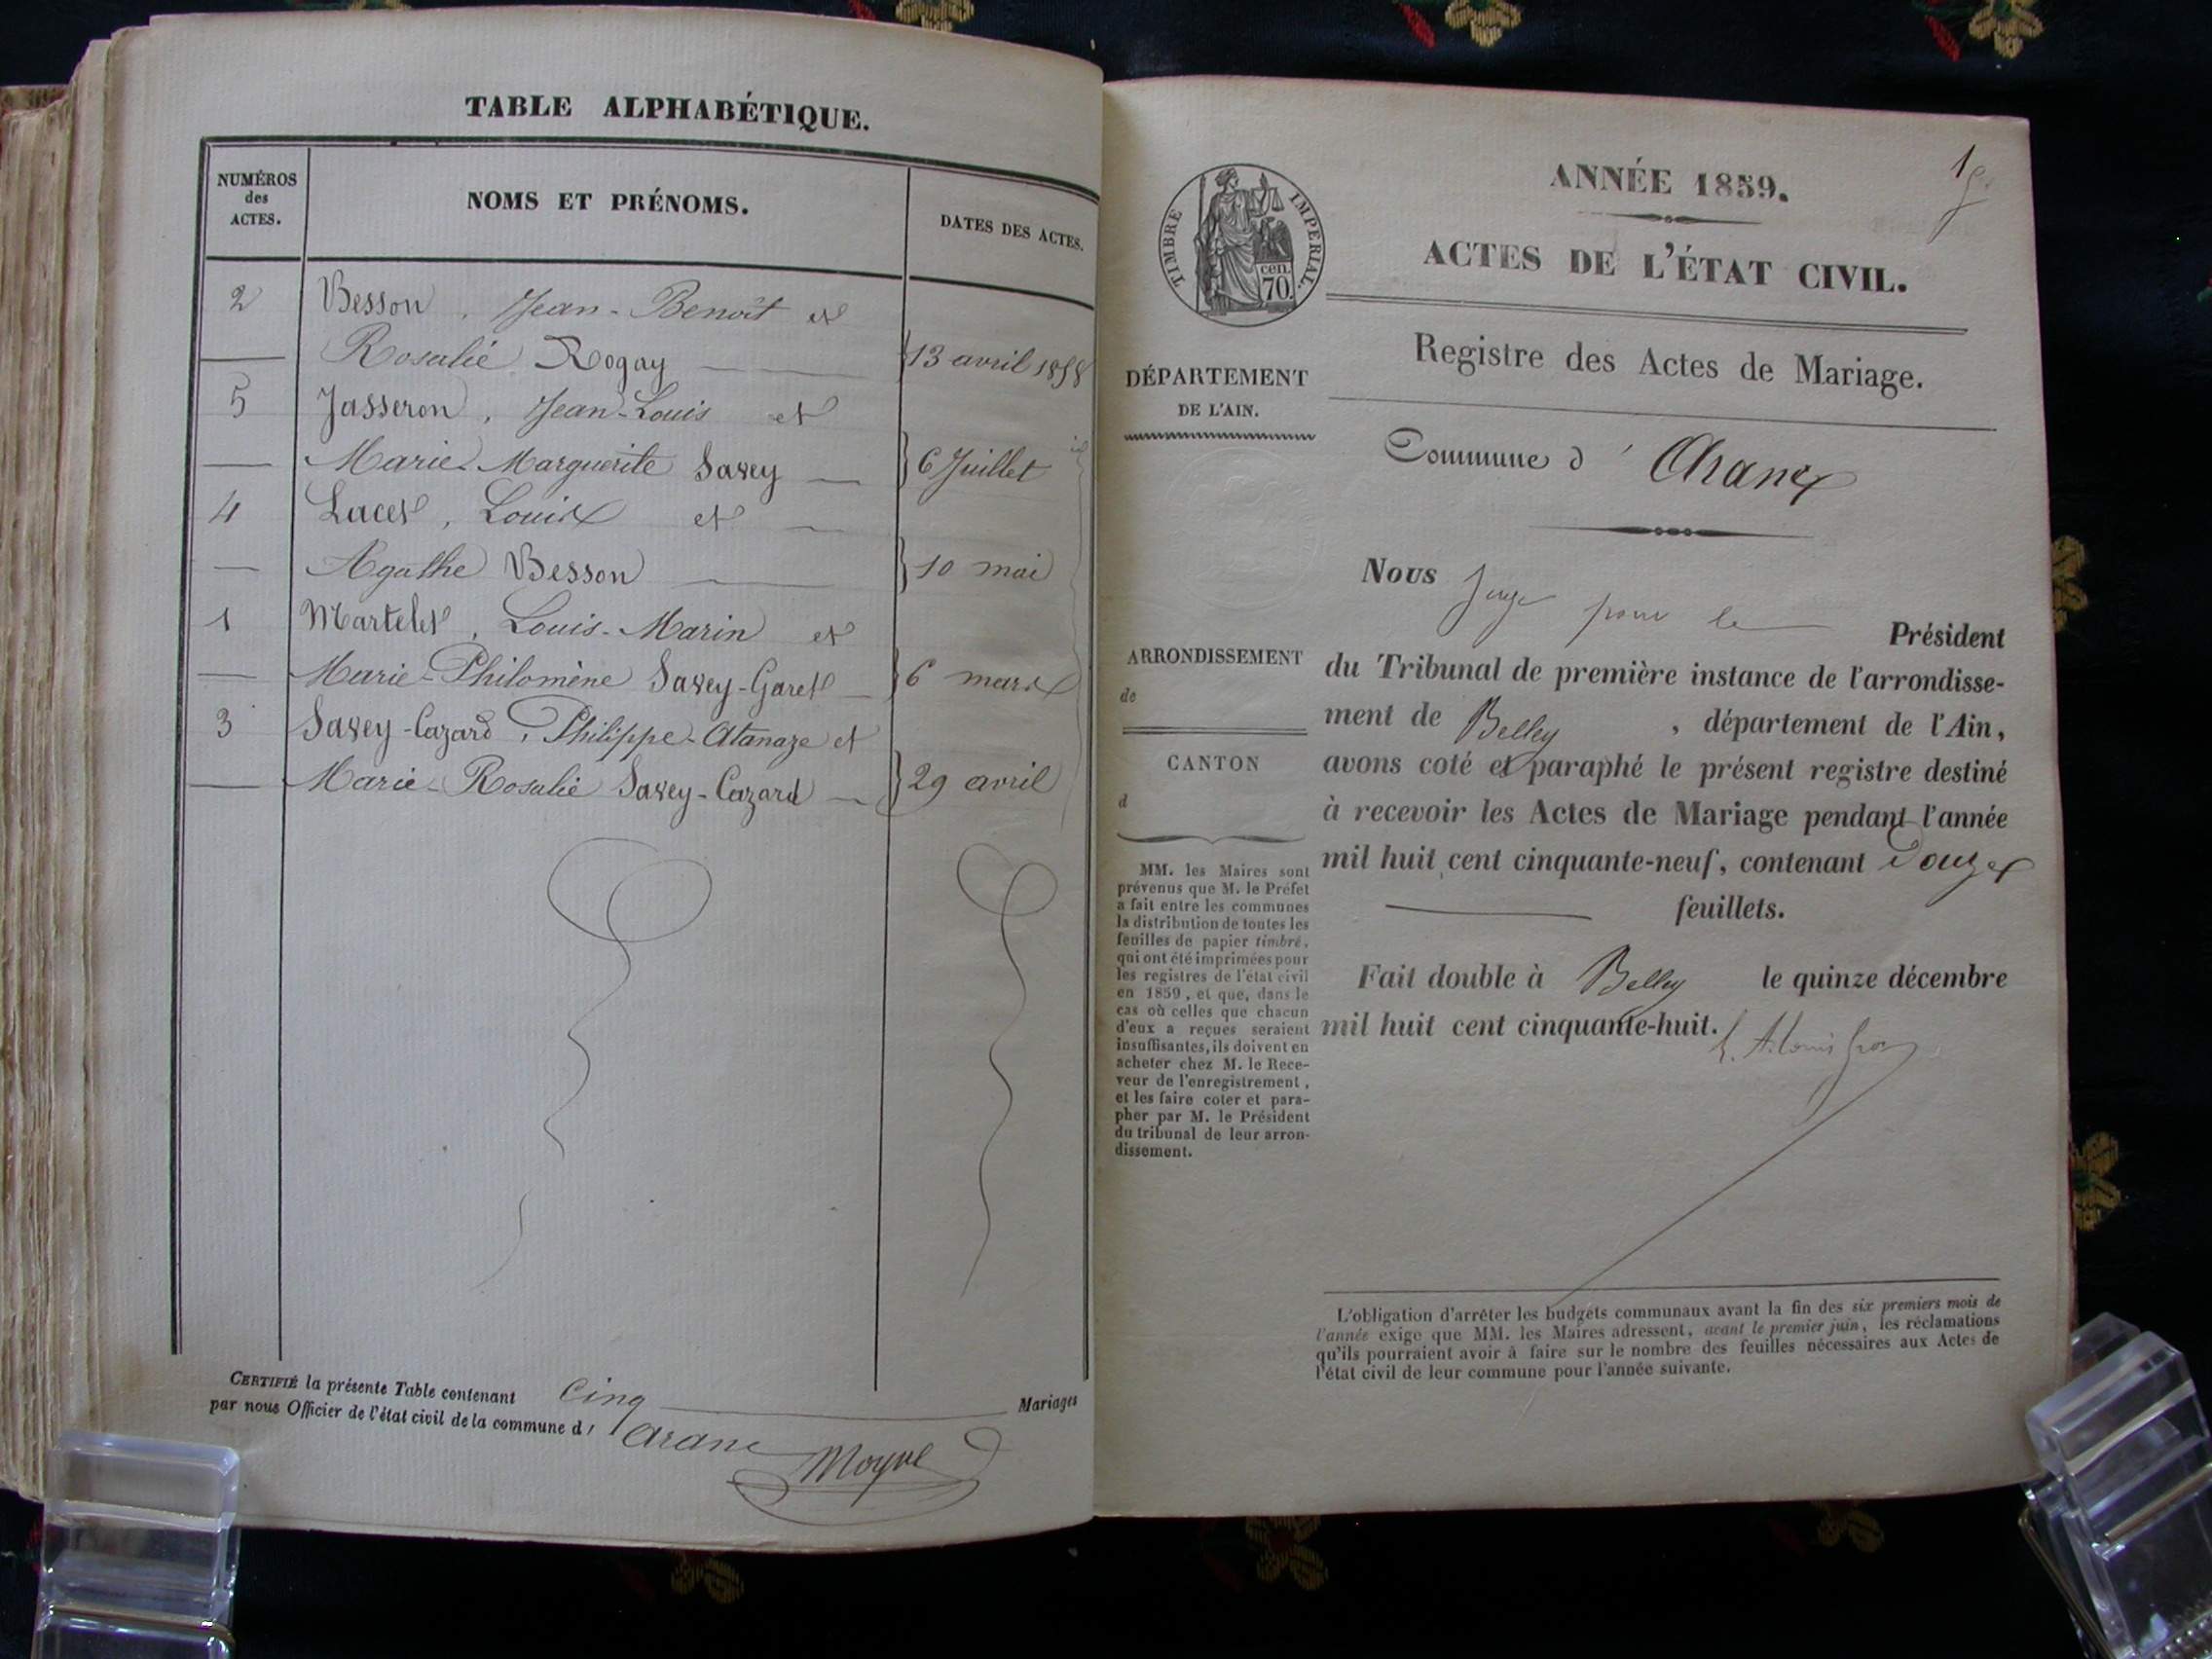 TABLE ALPHABÉTIQUE.
NUMÉROS
des
ACTES.
NOMS ET PRÉNOMS.
DATES DES ACTES.
2 Besson, Jean-Benoît et
— Rosalie Rogay — 13 avril 1858
5 Jasseron, Jean-Louis et
— Marie-Marguerite Savey — 6 Juillet
4 Lacet, Louis et
— Agathe Besson — 10 mai
1 Martelet, Louis-Marin et
— Marie-Philomène Savey-Garet — 6 mars
3 Savey-Cazard, Philippe-Atanaze et
— Marie-Rosalie Savey-Cazard — 29 avril
CERTIFIÉ la présente Table contenant Cinq Mariages
par nous Officier de l'état civil de la commune d' Aranc
Moyne
1
ANNÉE 1859.
ACTES DE L'ÉTAT CIVIL.
TIMBRE IMPERIAL.
cen.
70.
Registre des Actes de Mariage.
DÉPARTEMENT
DE L'AIN.
Commune d' Aranc
Nous Juge pour le Président
du Tribunal de première instance de l'arrondisse-
ment de Belley, département de l'Ain,
avons coté et paraphé le présent registre destiné
à recevoir les Actes de Mariage pendant l'année
mil huit cent cinquante-neuf, contenant Douze
feuillets.
Fait double à Belley le quinze décembre
mil huit cent cinquante-huit.
ARRONDISSEMENT
de
CANTON
d
MM. les Maires sont
prévenus que M. le Préfet
a fait entre les communes
la distribution de toutes les
feuilles de papier timbré,
qui ont été imprimées pour
les registres de l'état civil
en 1859, et que, dans le
cas où celles que chacun
d'eux a reçues seraient
insuffisantes, ils doivent en
acheter chez M. le Rece-
veur de l'enregistrement,
et les faire coter et para-
pher par M. le Président
du tribunal de leur arron-
dissement.
L'obligation d'arrêter les budgets communaux avant la fin des six premiers mois de
l'année exige que MM. les Maires adressent, avant le premier juin, les réclamations
qu'ils pourraient avoir à faire sur le nombre des feuilles nécessaires aux Actes de
l'état civil de leur commune pour l'année suivante.